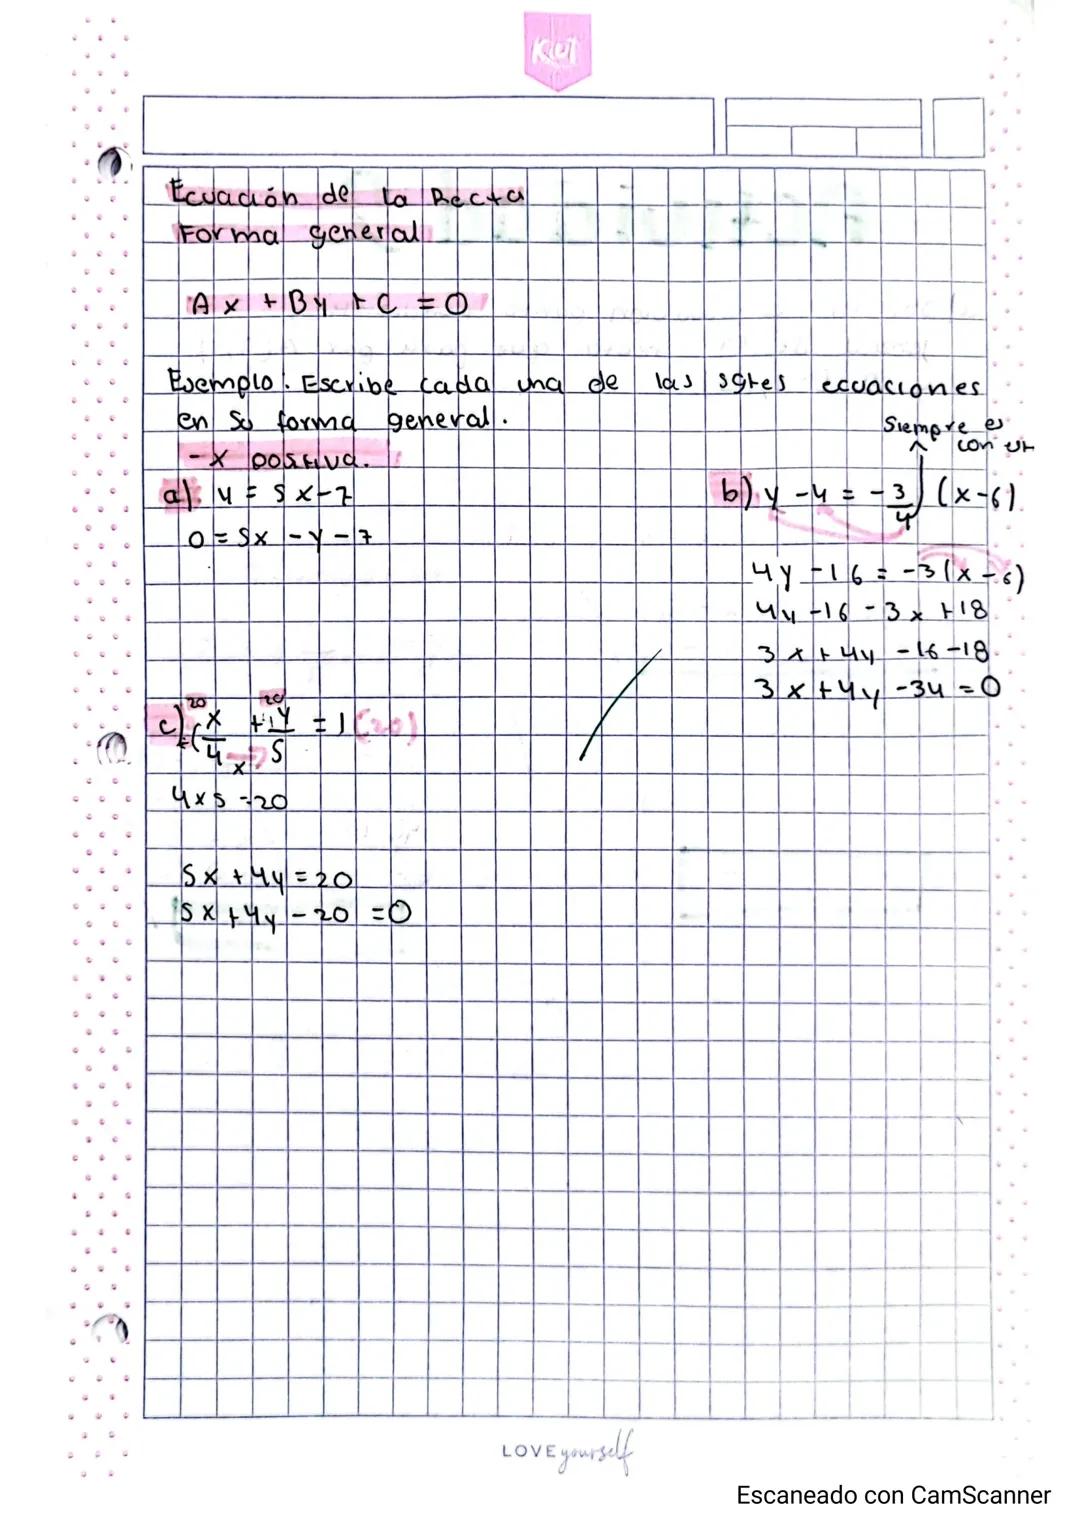 Kiut
Ecuación de la Recta
Forma general
Ax + By + C = 0
Ejemplo: Escribe cada una de las sgtes ecuaciones
en su forma general.
- x positiva.
a) y = 5x-7
0 = 5x - y - 7
Siempre es
con
b) y - 4 = -3/4 (x-6)
4y - 16 = -3(x-6)
4y -16 -3x +18
3x + 4y -16 -18
3x + 4y -34 = 0
c) (x/4 + 1y/5 = 1 (20)
20 20
x
4x5 = 20
5x + 4y = 20
5x + 4y - 20 = 0
LOVE yourself
Escaneado con CamScanner